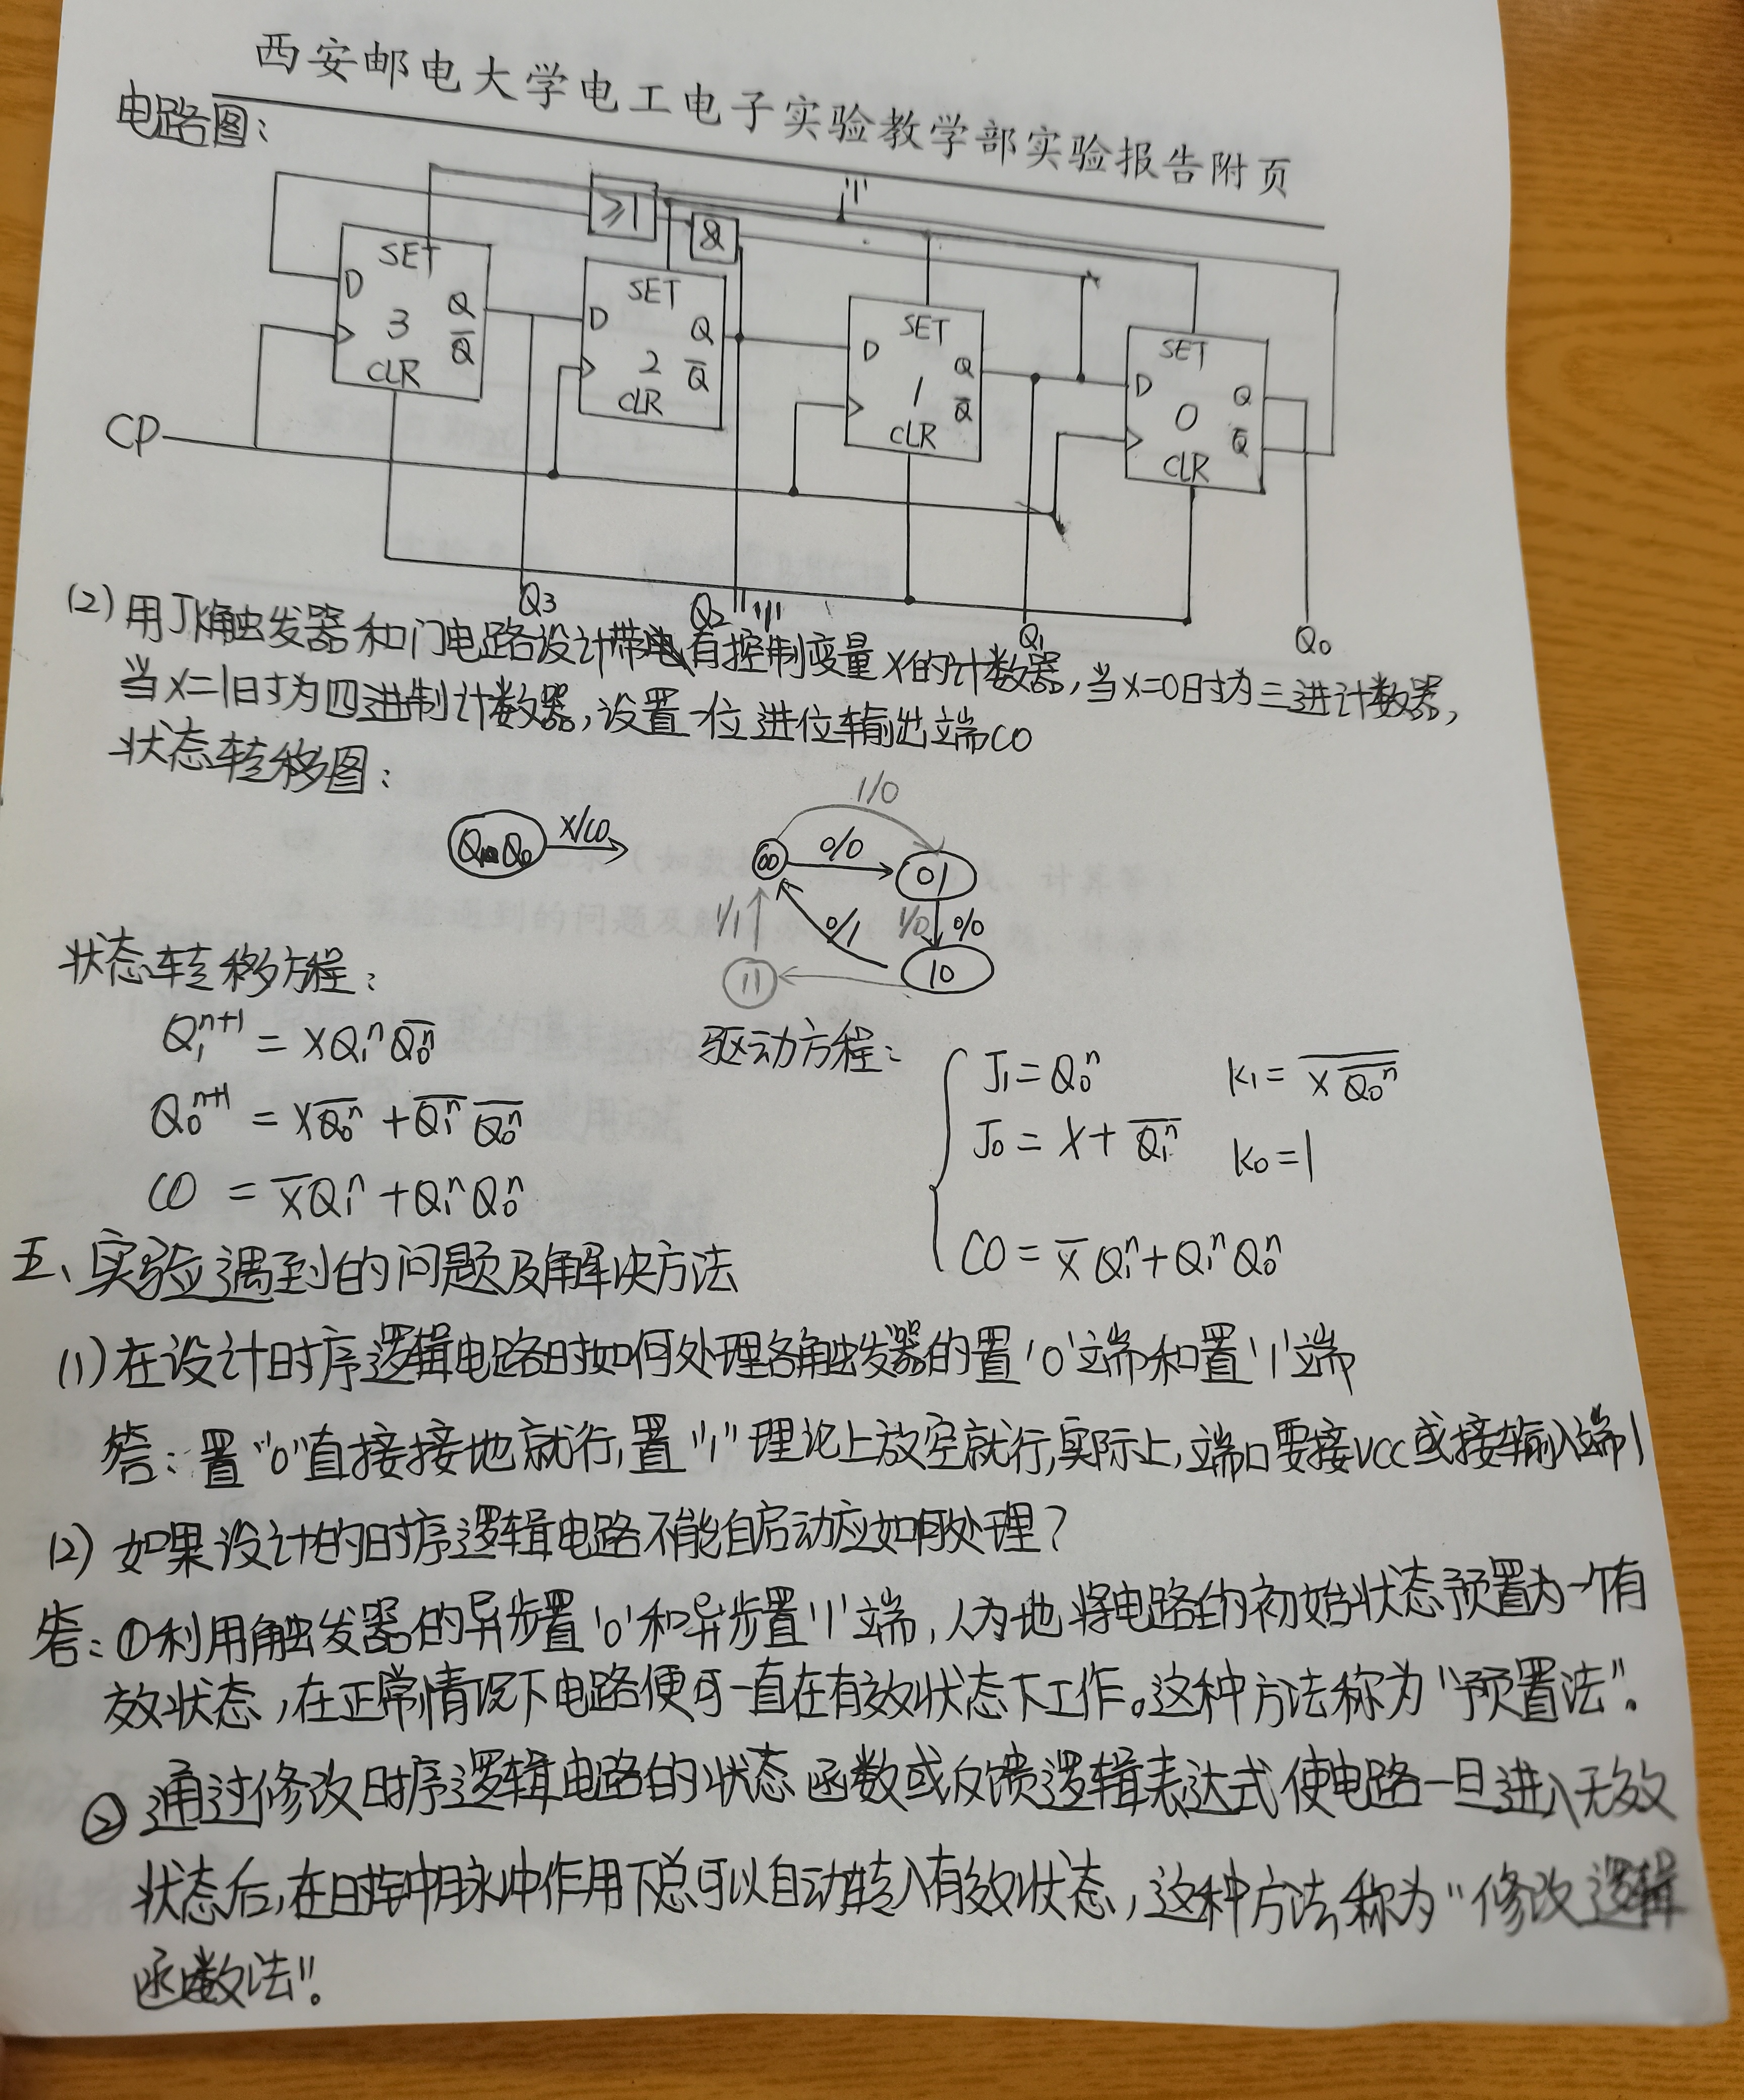 西安邮电大学电工电子实验教学部实验报告附页
电路图:
"1"
≥1
&
SET
D
3
Q
Q̅
CLR
SET
D
2
Q
Q̅
CLR
SET
D
1
Q
Q̅
CLR
SET
D
0
Q
Q̅
CLR
CP
Q3
Q2
"1"
Q1
Q0
(2) 用JK触发器和门电路设计带有控制变量X的计数器,当X=0时为三进计数器,
当X=1时为四进制计数器,设置一位进位输出端CO
状态转移图:
Q₁Q₀
X/CO
1/0
00
0/0
01
1/1
0/1
1/0
0/0
11
10
状态转移方程:
Q₁ⁿ⁺¹ = XQ₁ⁿQ̅₀ⁿ
Q₀ⁿ⁺¹ = XQ̅₀ⁿ + Q̅₁ⁿ Q̅₀ⁿ
CO = X̅Q₁ⁿ + Q₁ⁿQ₀ⁿ
驱动方程:
J₁ = Q₀ⁿ K₁ = \overline{X \overline{Q₀ⁿ}}
J₀ = X + Q̅₁ⁿ K₀ = 1
CO = X̅ Q₁ⁿ + Q₁ⁿ Q₀ⁿ
五、实验遇到的问题及解决方法
(1) 在设计时序逻辑电路时如何处理各触发器的置'0'端和置'1'端
答:置"0"直接接地就行,置"1"理论上放空就行,实际上,端口要接VCC或接输入端1
(2) 如果设计的时序逻辑电路不能自启动应如何处理?
答:①利用触发器的异步置'0'和异步置'1'端,人为地将电路的初始状态预置为一个有
效状态,在正常情况下电路便可一直在有效状态下工作。这种方法称为"预置法"。
② 通过修改时序逻辑电路的状态函数或反馈逻辑表达式使电路一旦进入无效
状态后,在时钟脉冲作用下总可以自动转入有效状态,这种方法称为"修改逻辑
函数法"。